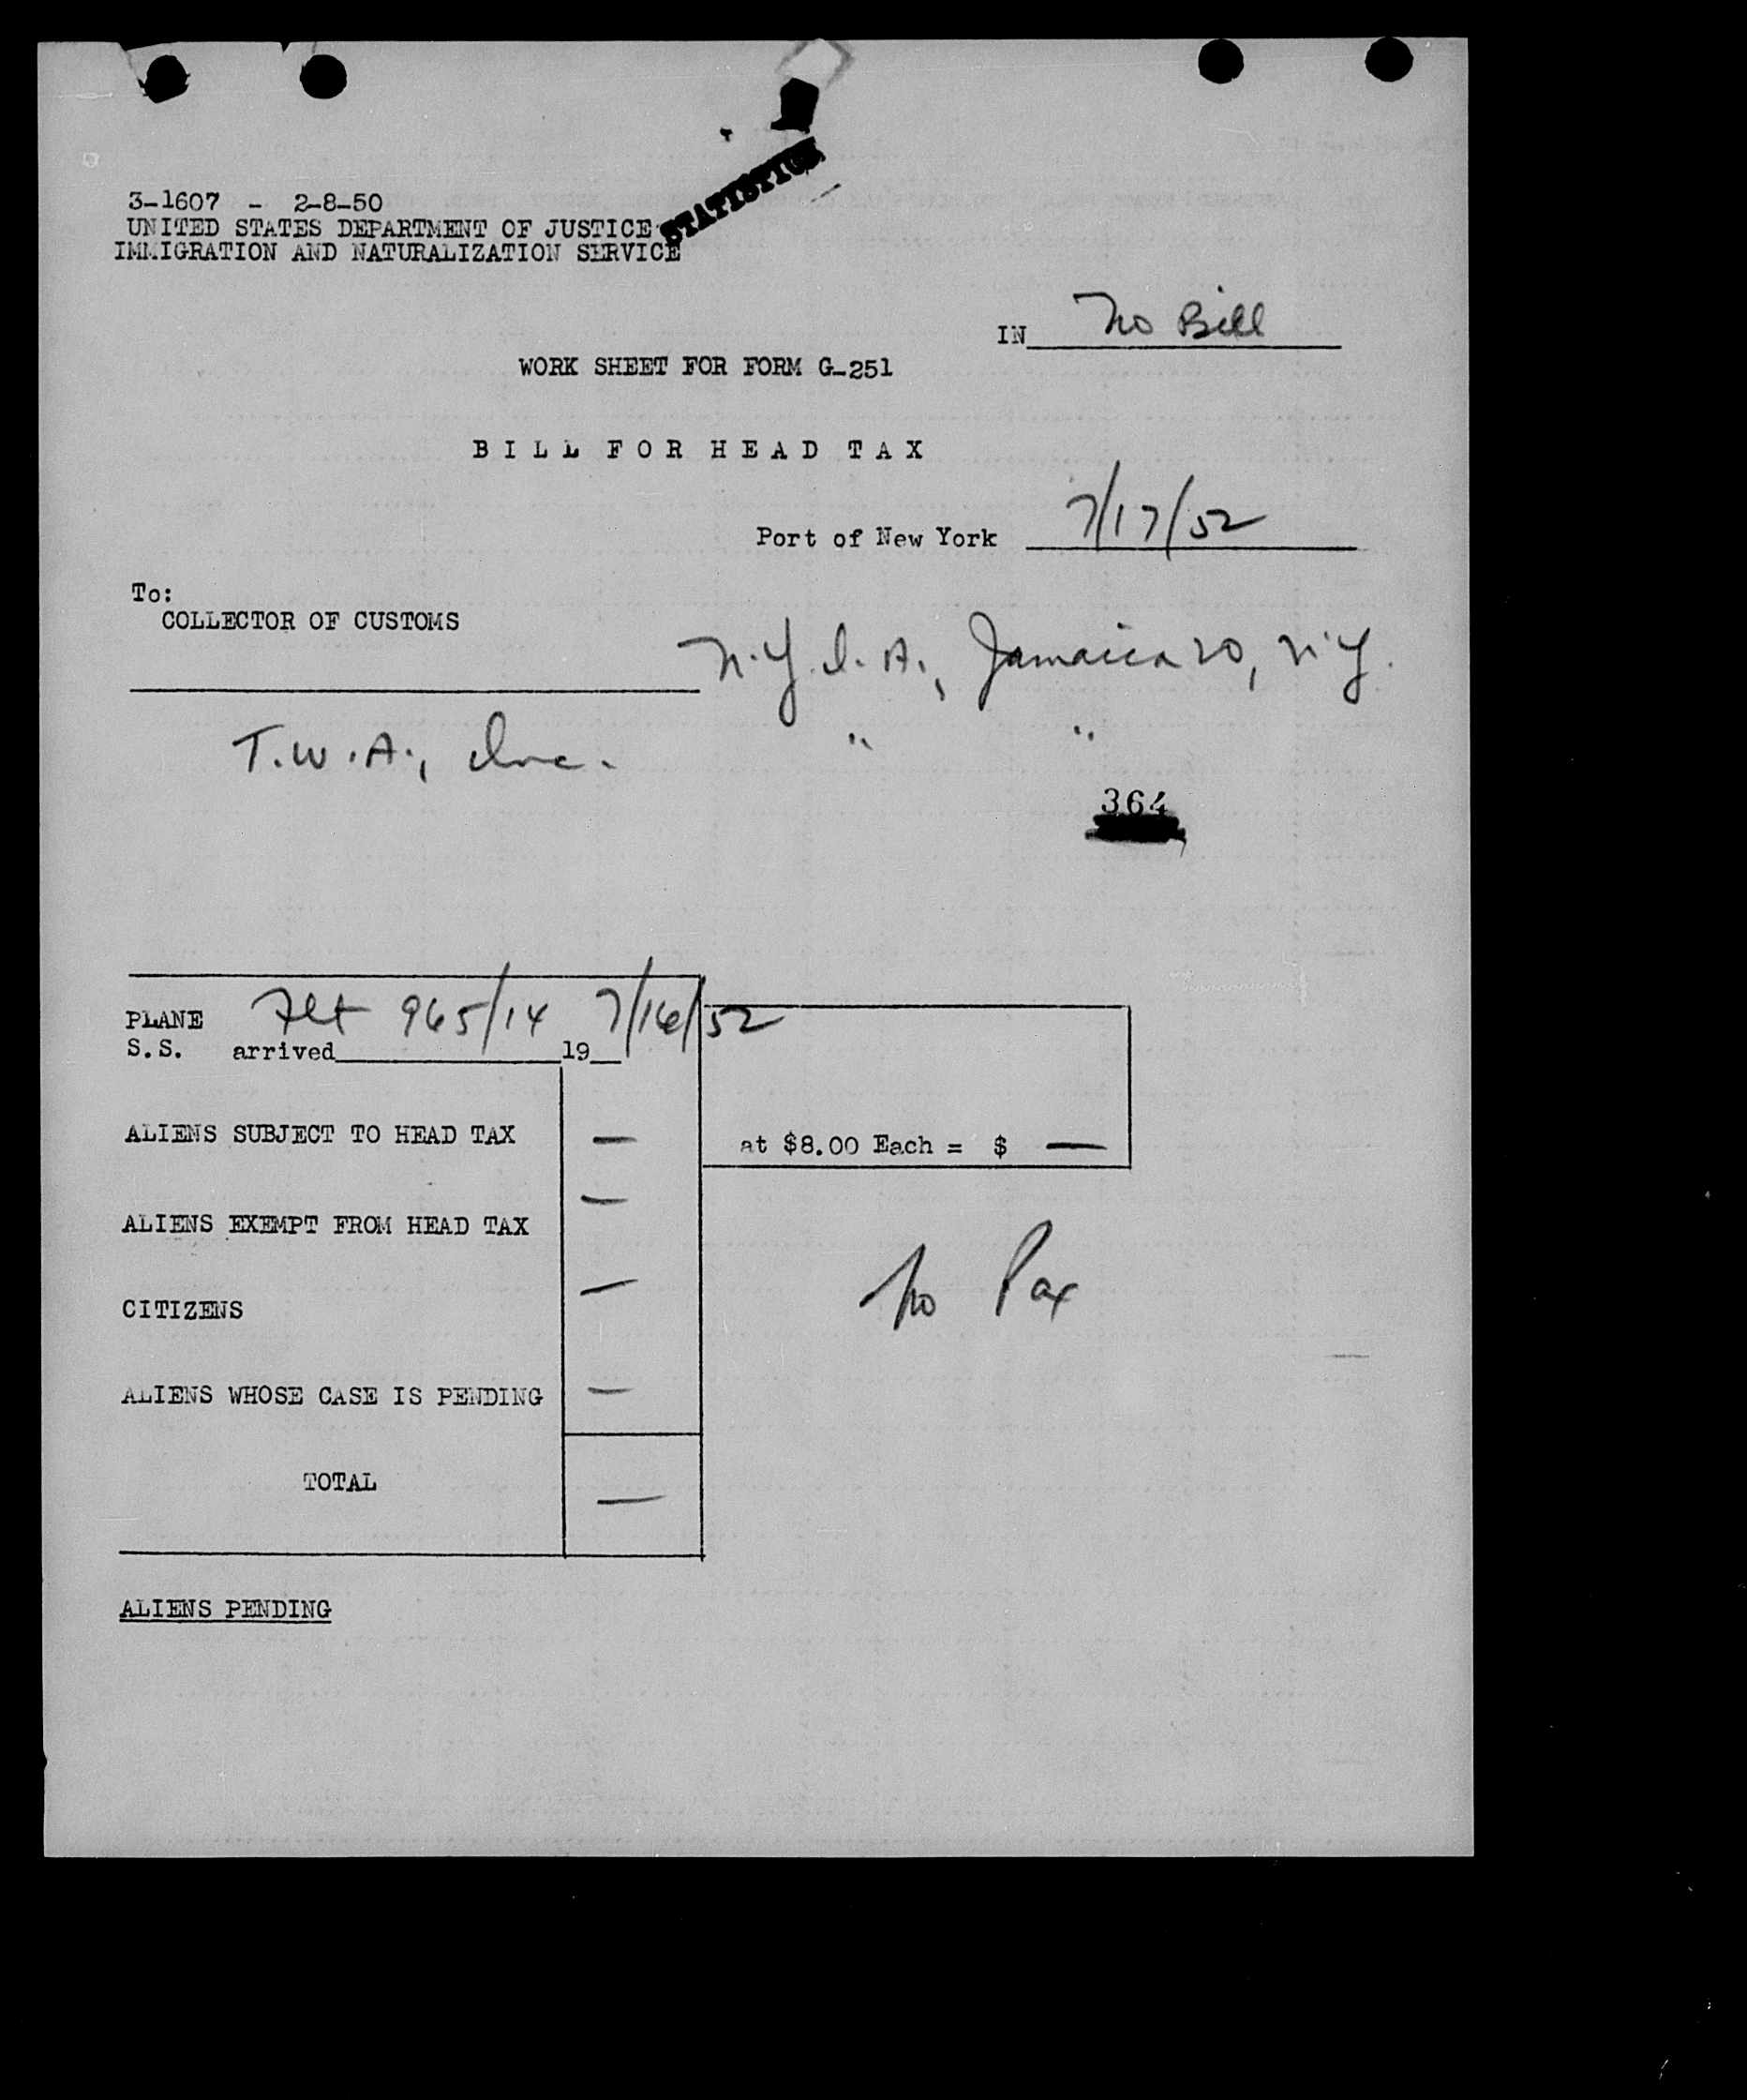 STATISTICS
3-1607 - 2-8-50
UNITED STATES DEPARTMENT OF JUSTICE
IMMIGRATION AND NATURALIZATION SERVICE
IN No Bill
WORK SHEET FOR FORM G-251
BILL FOR HEAD TAX
Port of New York 7/17/52
To:
COLLECTOR OF CUSTOMS
N.Y.I.A., Jamaica 20, N.Y.
T.W.A., Inc. " "
364
PLANE Flt 965/14 7/16/52
S.S. arrived 19
ALIENS SUBJECT TO HEAD TAX — at $8.00 Each = $ —
ALIENS EXEMPT FROM HEAD TAX —
CITIZENS — No Pax
ALIENS WHOSE CASE IS PENDING —
TOTAL —
ALIENS PENDING